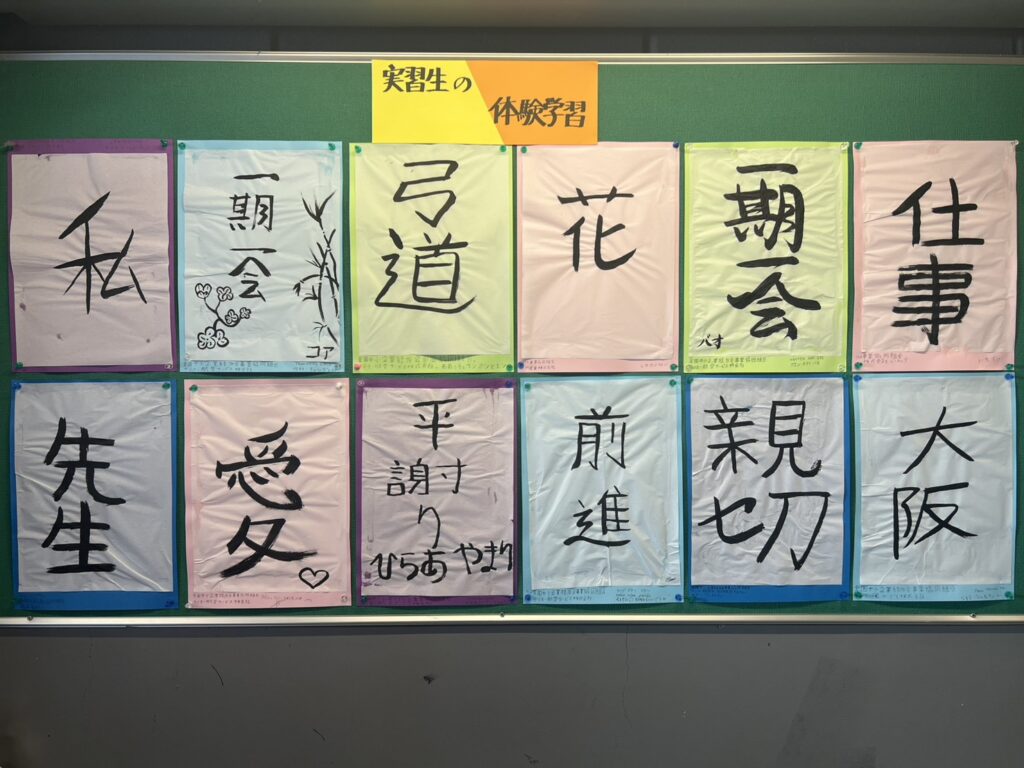 実習生の
体験学習
私
一期一会
コア
弓道
花
一期一会
パオ
仕事
先生
愛
平謝り
ひらあやまり
前進
親切
大阪